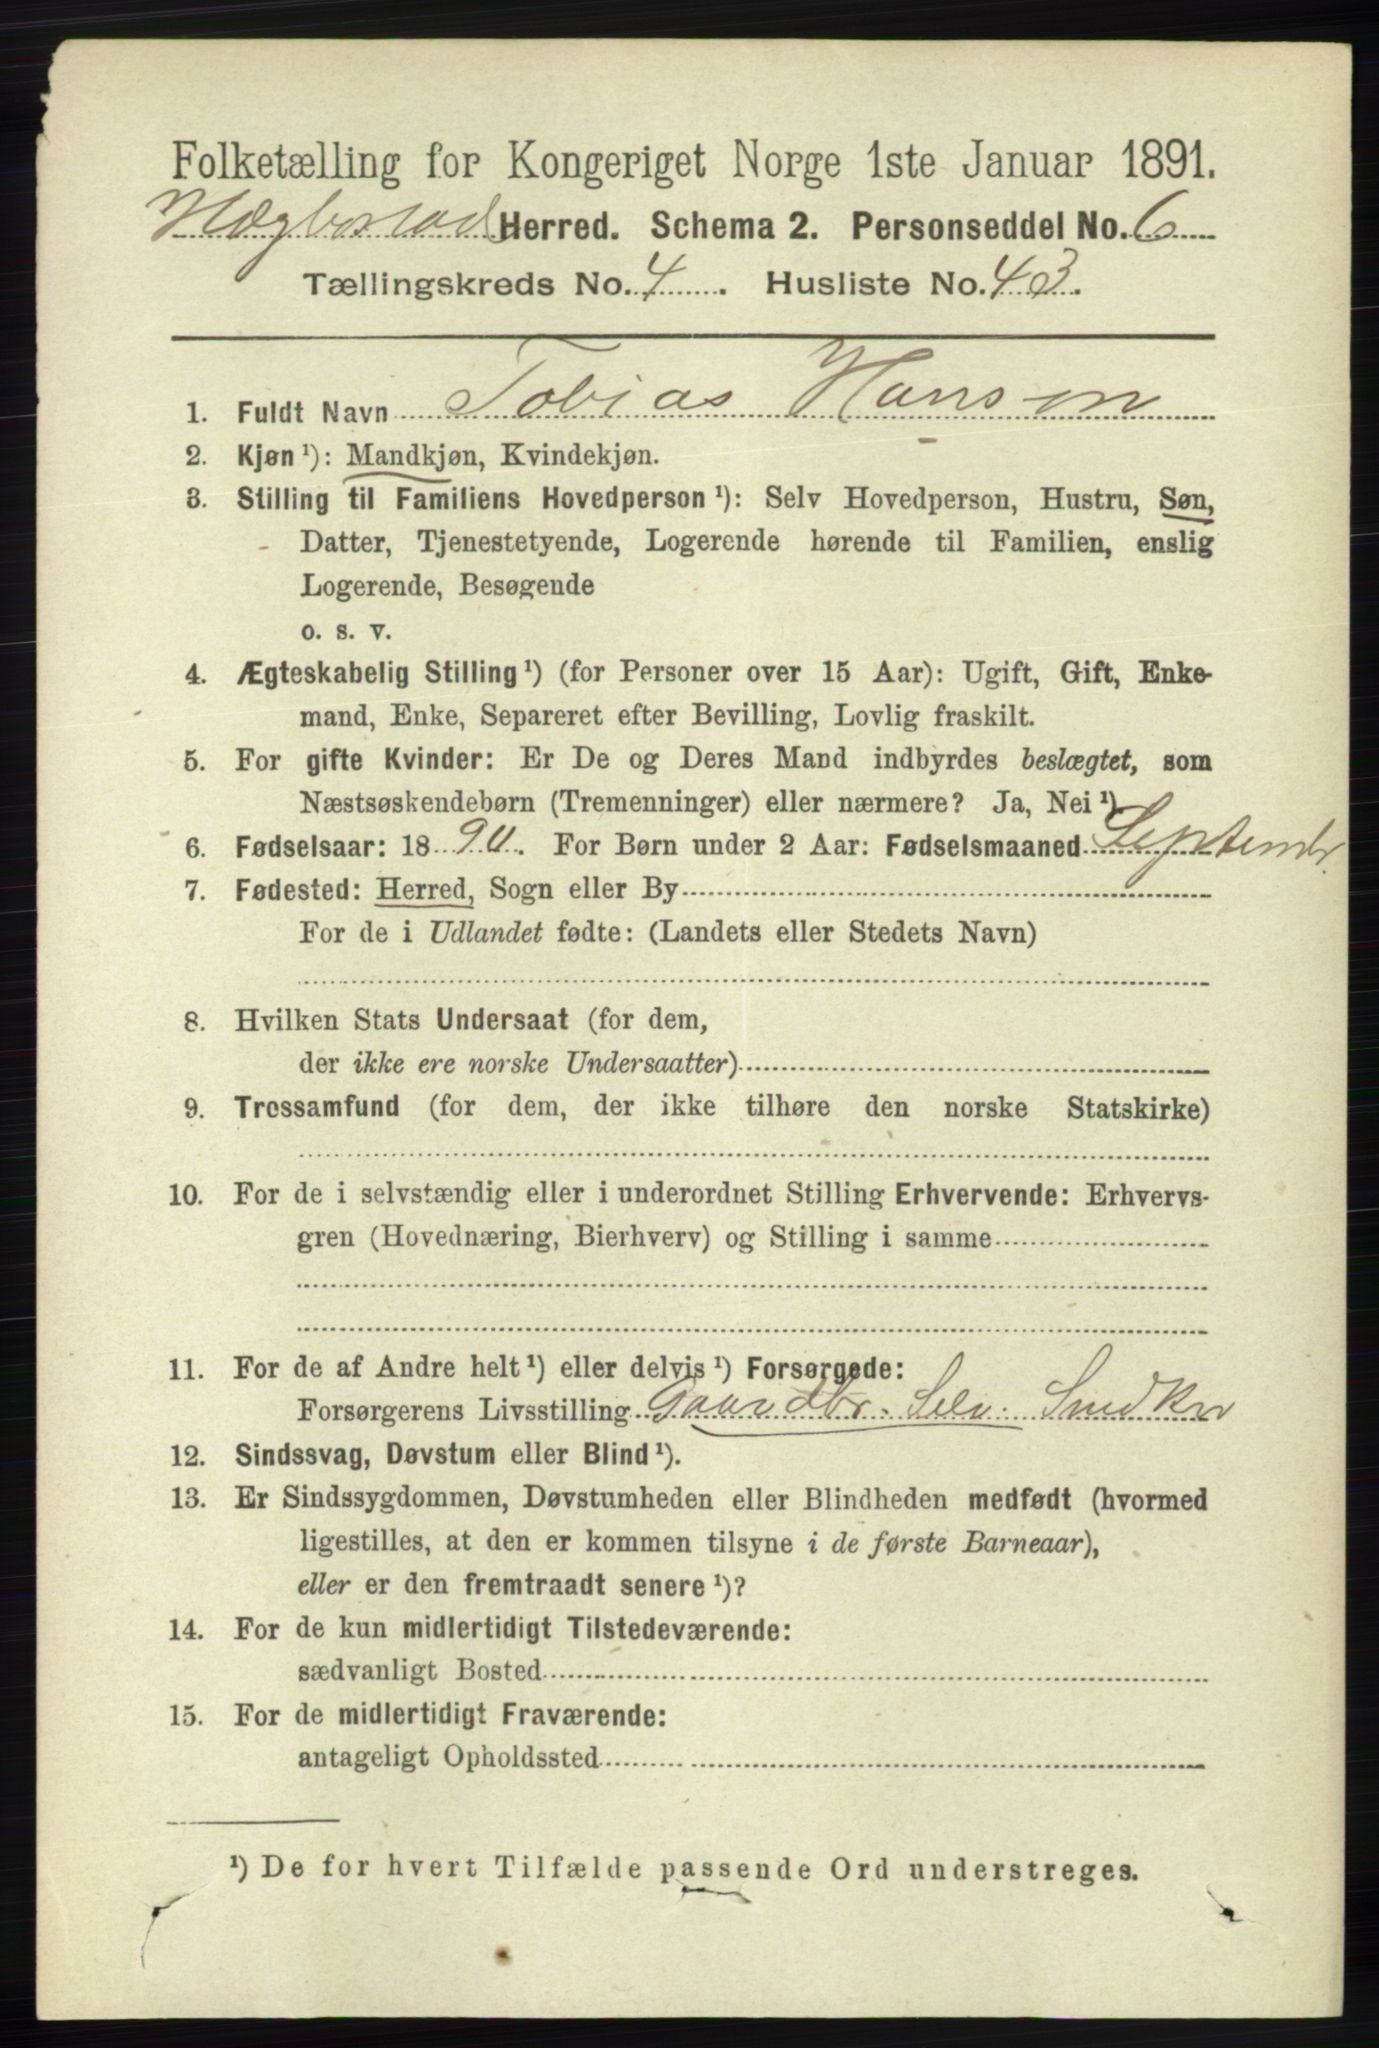 Folketælling for Kongeriget Norge 1ste Januar 1891.
Hægbostad Herred. Schema 2. Personseddel No. 6
Tællingskreds No. 4. Husliste No. 43.
1. Fuldt Navn Tobias Hansen
2. Kjøn ¹): Mandkjøn, Kvindekjøn.
3. Stilling til Familiens Hovedperson ¹): Selv Hovedperson, Hustru, Søn,
Datter, Tjenestetyende, Logerende hørende til Familien, enslig
Logerende, Besøgende
o. s. v.
4. Ægteskabelig Stilling ¹) (for Personer over 15 Aar): Ugift, Gift, Enke-
mand, Enke, Separeret efter Bevilling, Lovlig fraskilt.
5. For gifte Kvinder: Er De og Deres Mand indbyrdes beslægtet, som
Næstsøskendebørn (Tremenninger) eller nærmere? Ja, Nei ¹)
6. Fødselsaar: 18 90. For Børn under 2 Aar: Fødselsmaaned Septembr.
7. Fødested: Herred, Sogn eller By
For de i Udlandet fødte: (Landets eller Stedets Navn)
8. Hvilken Stats Undersaat (for dem,
der ikke ere norske Undersaatter)
9. Trossamfund (for dem, der ikke tilhøre den norske Statskirke)
10. For de i selvstændig eller i underordnet Stilling Erhvervende: Erhvervs-
gren (Hovednæring, Bierhverv) og Stilling i samme
11. For de af Andre helt ¹) eller delvis ¹) Forsørgede:
Forsørgerens Livsstilling Gaardbr. Selv. Snedker
12. Sindssvag, Døvstum eller Blind ¹).
13. Er Sindssygdommen, Døvstumheden eller Blindheden medfødt (hvormed
ligestilles, at den er kommen tilsyne i de første Barneaar),
eller er den fremtraadt senere ¹)?
14. For de kun midlertidigt Tilstedeværende:
sædvanligt Bosted
15. For de midlertidigt Fraværende:
antageligt Opholdssted
¹) De for hvert Tilfælde passende Ord understreges.